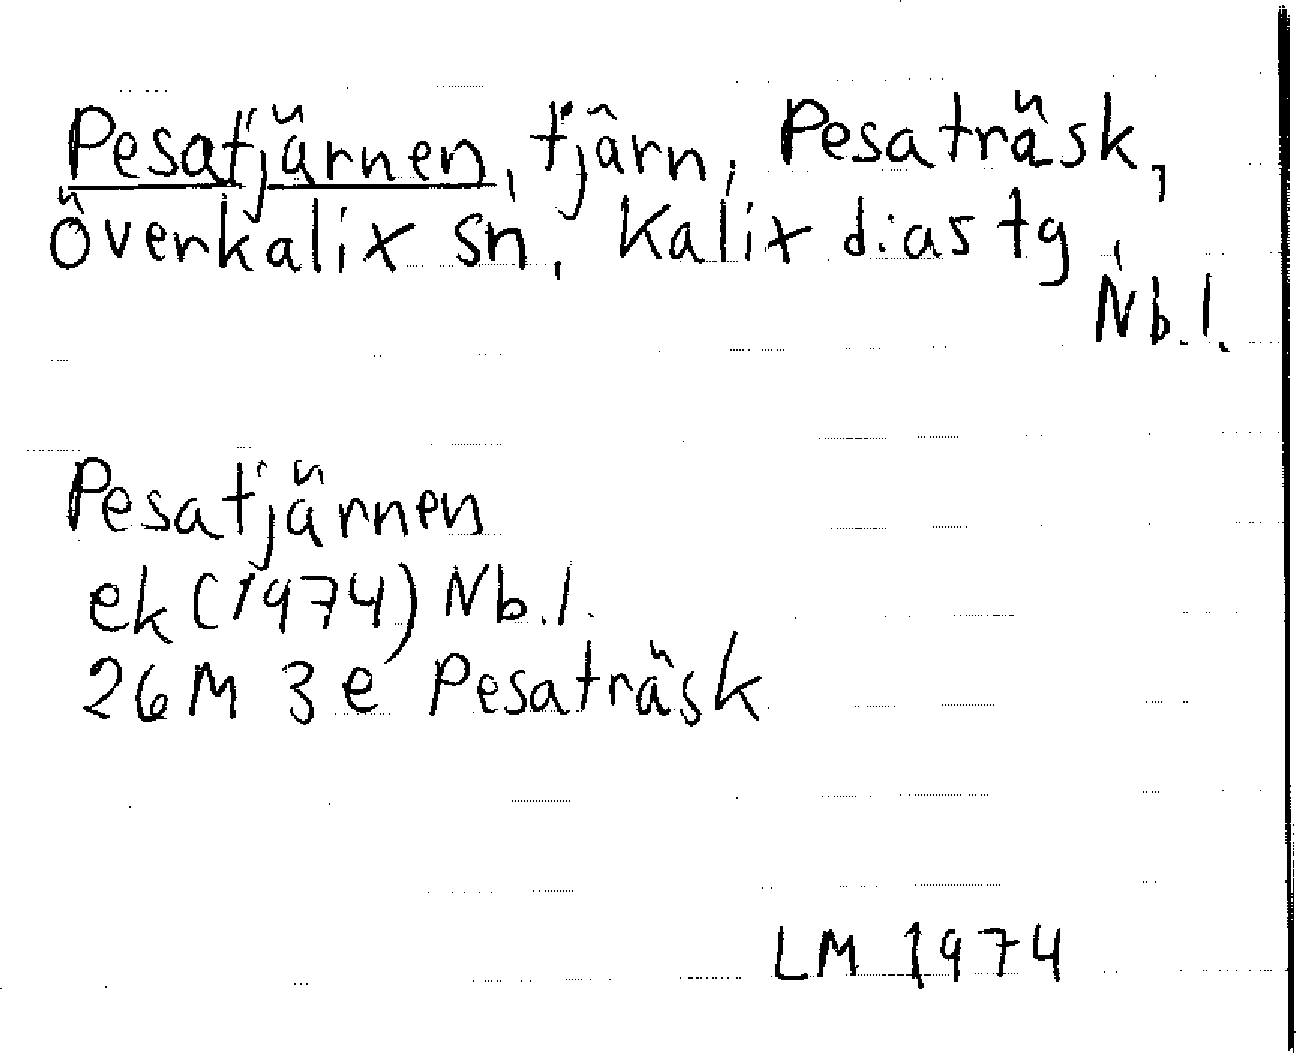 Pesatjärnen, tjärn, Pesaträsk,
Överkalix sn, Kalix dias tg,
Nb.l.
Pesatjärnen
ek (1974) Nb.l.
26M 3e Pesaträsk
LM 1974